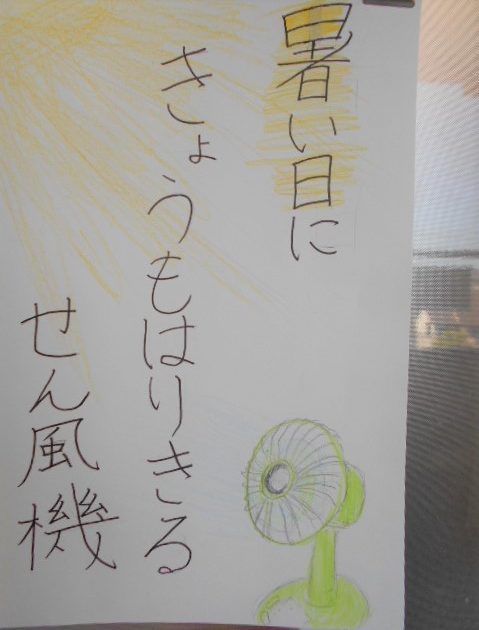 暑い日に
きょうもはりきる
せん風機